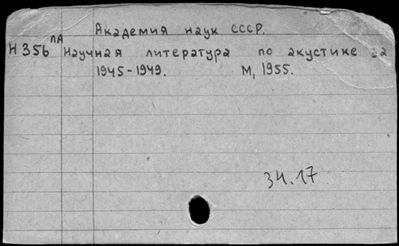 Академия наук СССР.
пА
Н356 Научная литература по акустике за
1945-1949. М, 1955.
34.17